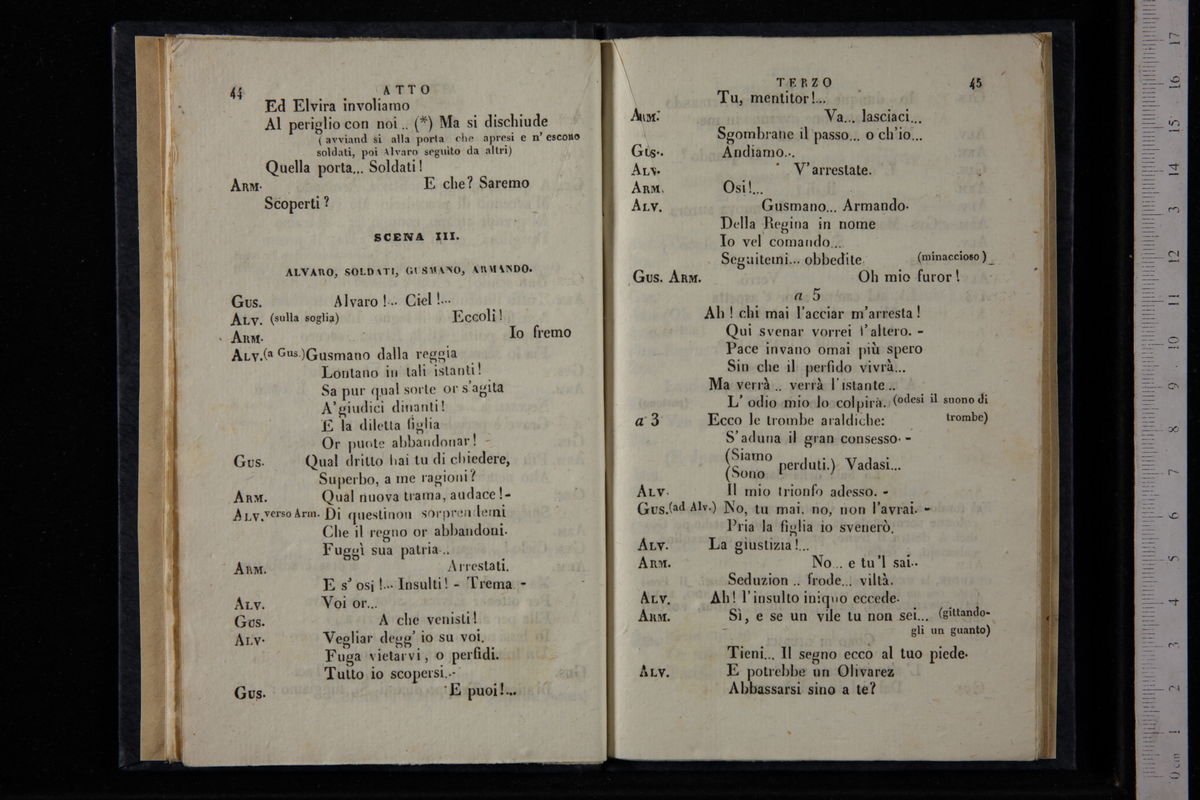 44 ATTO
Ed Elvira involiamo
Al periglio con noi .. (*) Ma si dischiude
( avviand si alla porta che apresi e n' escono
soldati, poi Alvaro seguito da altri)
Quella porta... Soldati!
ARM. E che? Saremo
Scoperti?
SCENA III.
ALVARO, SOLDATI, GUSMANO, ARMANDO.
GUS. Alvaro!... Ciel!...
ALV. (sulla soglia) Eccoli!
ARM. Io fremo
ALV.(a Gus.)Gusmano dalla reggia
Lontano in tali istanti!
Sa pur qual sorte or s'agita
A' giudici dinanti!
E la diletta figlia
Or puote abbandonar! -
GUS. Qual dritto hai tu di chiedere,
Superbo, a me ragioni?
ARM. Qual nuova trama, audace! -
ALV.verso Arm. Di questinon sorprendemi
Che il regno or abbandoni.
Fuggì sua patria...
ARM. Arrestati.
E s' osi!... Insulti! - Trema. -
ALV. Voi or...
GUS. A che venisti!
ALV. Vegliar degg' io su voi.
Fuga vietarvi, o perfidi.
Tutto io scopersi...
GUS. E puoi!...
TERZO 45
Tu, mentitor!...
ARM. Va... lasciaci...
Sgombrate il passo... o ch'io...
GUS. Andiamo...
ALV. V'arrestate.
ARM. Osi!...
ALV. Gusmano... Armando.
Della Regina in nome
Io vel comando...
Seguitemi... obbedite (minaccioso)
GUS. ARM. Oh mio furor!
a 5
Ah! chi mai l'acciar m'arresta!
Qui svenar vorrei l'altero. -
Pace invano omai più spero
Sin che il perfido vivrà...
Ma verrà .. verrà l'istante ..
L' odio mio lo colpirà. (odesi il suono di
a 3 Ecco le trombe araldiche: trombe)
S'aduna il gran consesso. -
(Siamo
(Sono perduti.) Vadasi...
ALV. Il mio trionfo adesso. -
GUS.(ad Alv.) No, tu mai, no, non l'avrai. -
Pria la figlia io svenerò.
ALV. La giustizia!...
ARM. No... e tu'l sai..
Seduzion .. frode... viltà.
ALV. Ah! l'insulto iniquo eccede.
ARM. Sì, e se un vile tu non sei... (gittando-
gli un guanto)
Tieni... Il segno ecco al tuo piede.
ALV. E potrebbe un Olivarez
Abbassarsi sino a te?
0 cm 1 2 3 4 5 6 7 8 9 10 11 12 13 14 15 16 17